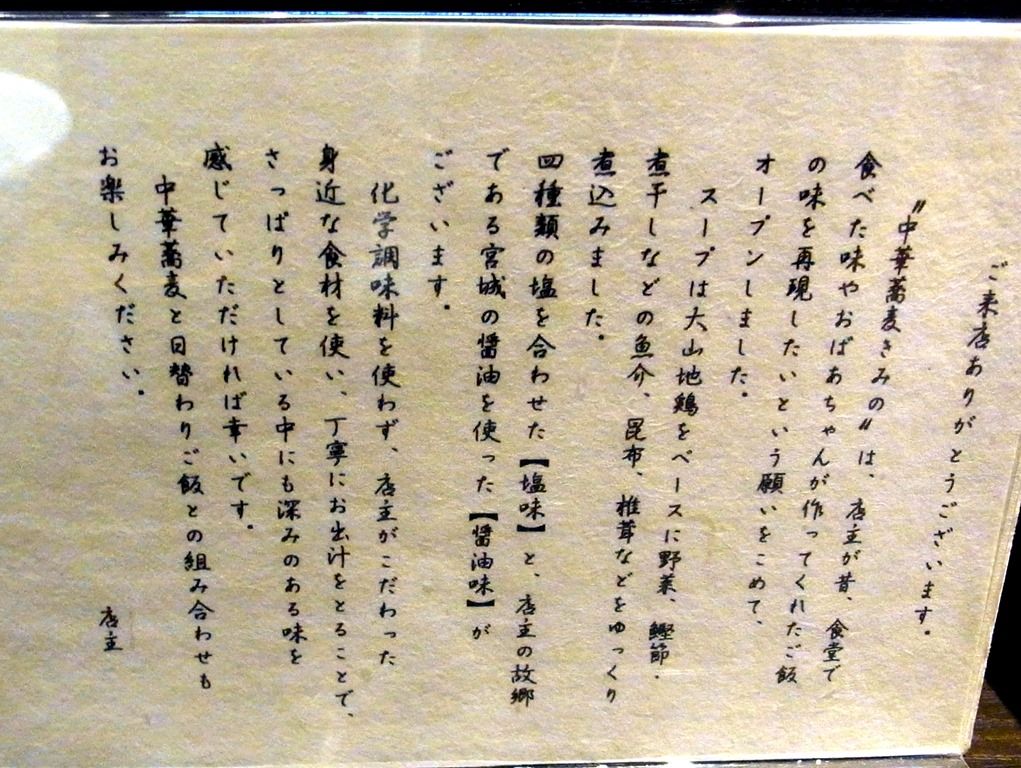 ご来店ありがとうございます。
〝中華蕎麦きみの〟は、店主が昔、食堂で
食べた味やおばあちゃんが作ってくれたご飯
の味を再現したいという願いをこめて、
オープンしました。
スープは大山地鶏をベースに野菜、鰹節・
煮干しなどの魚介、昆布、椎茸などをゆっくり
煮込みました。
四種類の塩を合わせた【塩味】と、店主の故郷
である宮城の醤油を使った【醤油味】が
ございます。
化学調味料を使わず、店主がこだわった
身近な食材を使い、丁寧にお出汁をとることで、
さっぱりとしている中にも深みのある味を
感じていただければ幸いです。
中華蕎麦と日替わりご飯との組み合わせも
お楽しみください。
店主